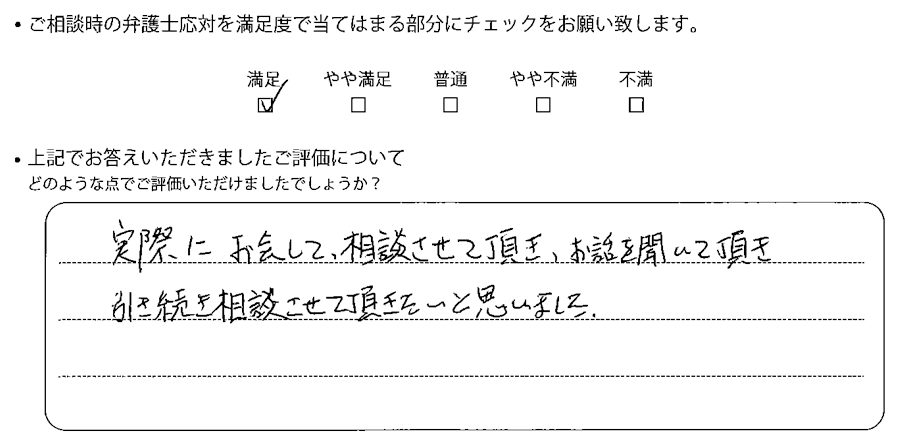 ・ご相談時の弁護士応対を満足度で当てはまる部分にチェックをお願い致します。
満足 やや満足 普通 やや不満 不満
・上記でお答えいただきましたご評価について
どのような点でご評価いただけましたでしょうか？
実際にお会して、相談させて頂き、お話を聞いて頂き
引き続き相談させて頂きたいと思いました。